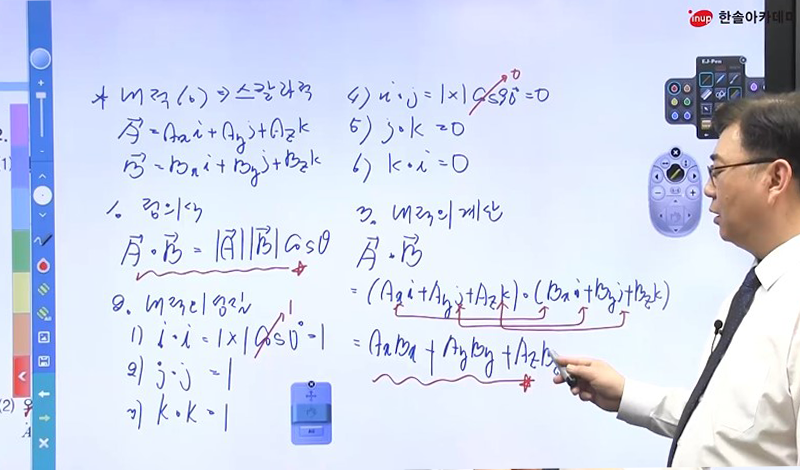 inup 한솔아카데미
EJ-Pen
* 내적(·) ⇒ 스칼라적
A⃗ = Axi + Ayj + Azk
B⃗ = Bxi + Byj + Bzk
1. 정의식
A⃗ · B⃗ = |A⃗||B⃗| cosθ
2. 내적의 성질
1) i · i = 1×1 cos0° = 1
1
2) j · j = 1
3) k · k = 1
4) i · j = 1×1 cos90° = 0
0
5) j · k = 0
6) k · i = 0
3. 내적의 계산
A⃗ · B⃗
= (Axi + Ayj + Azk) · (Bxi + Byj + Bzk)
= AxBx + AyBy + AzB
2.
1)
(2)